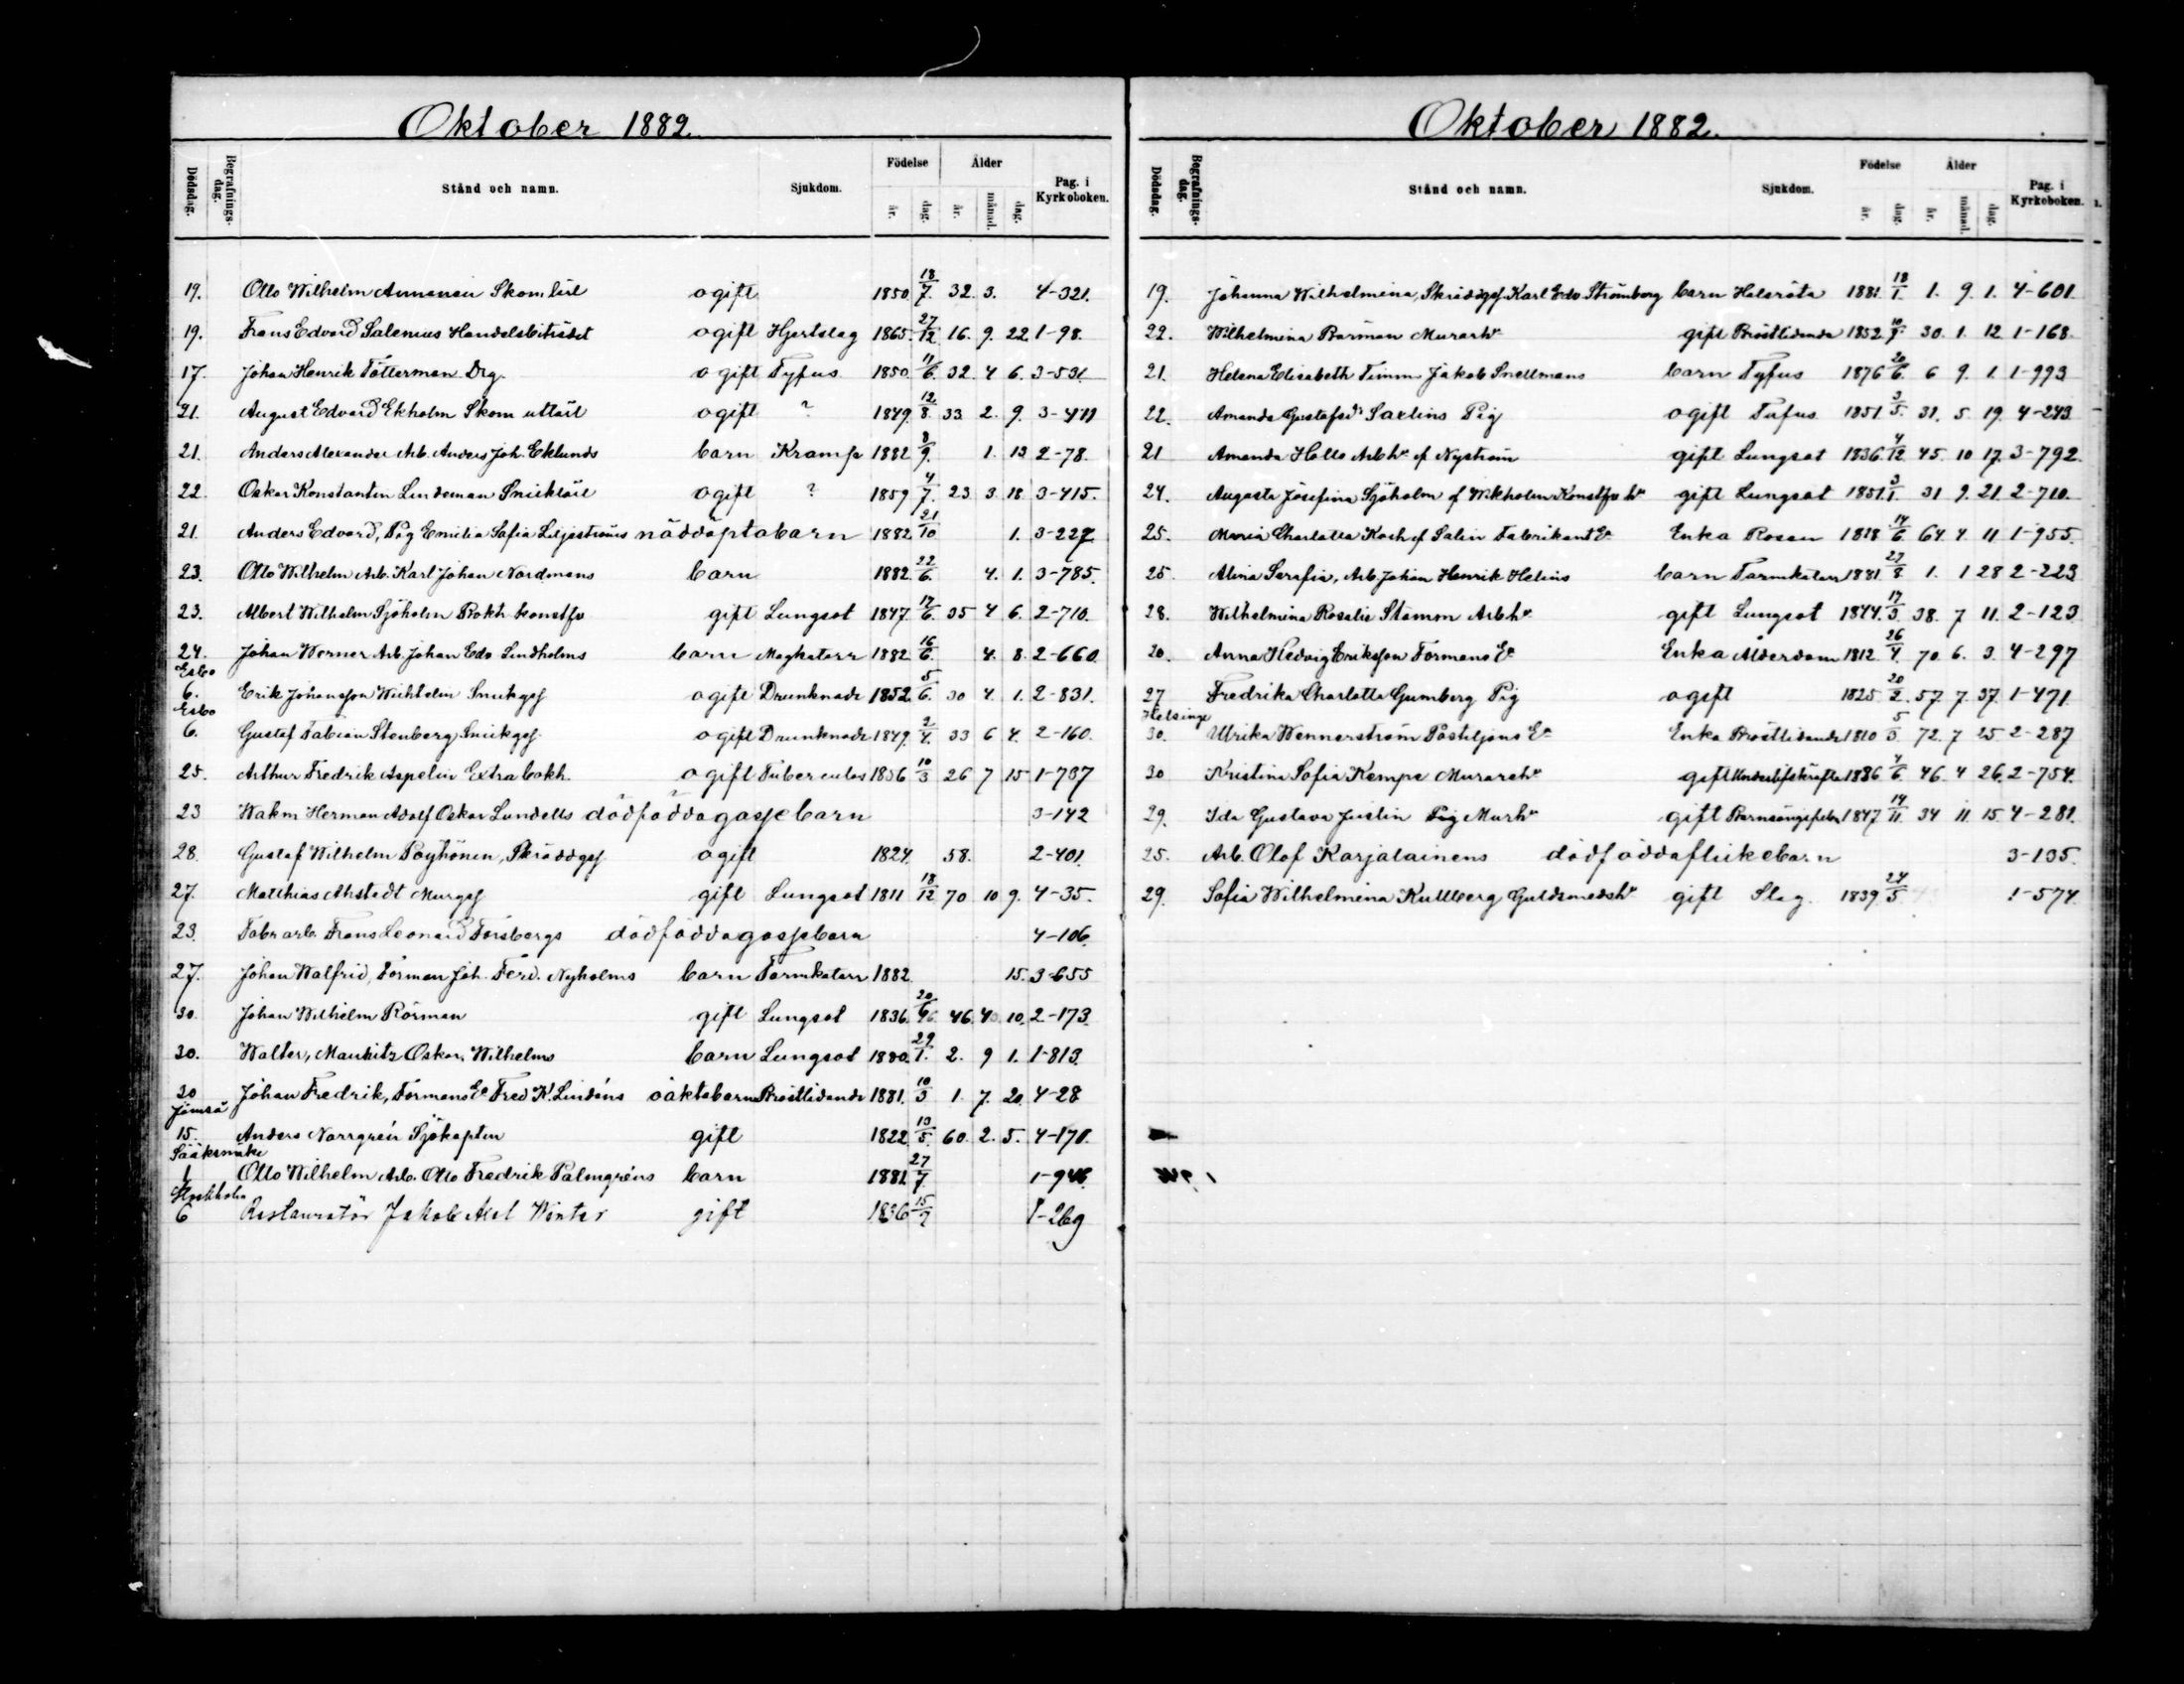 Oktober 1882.
Dödsdag. Begrafnings-dag. Stånd och namn. Sjukdom. Födelse år. dag. Ålder år. månad. dag. Pag. i Kyrkoboken.
19. Otto Wilhelm Annanen Skom. lärl ogift 1850. 18/7. 32. 3. 4-321.
19. Frans Edvard Salenius Handelsbiträdet ogift Hjertslag 1865. 27/12 16. 9. 22 1-98.
17. Johan Henrik Tötterman Drg. ogift Tyfus 1850. 11/6. 32. 4 6. 3-531.
21. August Edvard Ekholm Skom utlärl ogift ? 1849. 12/8. 33 2. 9. 3-411
21. Anders Alexander Arb. Anders Joh. Eklunds barn Kramp 1882 8/9. 1. 13 2-78.
22. Oskar Konstantin Lindeman Snicklärl ogift ? 1859 4/7. 23. 3. 18 3-415.
21. Anders Edvard, Pig Emilia Sofia Liljeströms nöddöpta barn 1882 21/10 1. 3-227
23. Otto Wilhelm Arb. Karl Johan Nordmans barn 1882. 22/6. 4. 1. 3-785.
23. Albert Wilhelm Sjöholm Bokh konstfö gift Lungsot 1847. 17/6. 35 4 6. 2-710.
24. Johan Werner Arb. Johan Edv Lindholms barn Magkatarr 1882 16/6. 4. 8. 2-660
Esbo
6. Erik Johansson Wichtelm Snickges ogift Drunknade 1852. 5/6. 30 4. 1. 2-831.
Esbo
6. Gustaf Fabian Stenberg Snickges ogift Drunknade 1849. 2/4. 33 6 4. 2-160.
25. Arthur Fredrik Aspelin Extra bokh. ogift Tubercules 1856 10/3 26 7 15 1-737
23 Wakm Herman Adolf Oskar Lundells dödfödda gossebarn 3-142
28. Gustaf Wilhelm Poyhönen, Skräddges ogift 1824. 58. 2-401.
27. Matthias Ahstedt Murges gift Lungsot 1811 18/12 70 10 9. 4-35.
23. Fabr arb. Frans Leonard Forsbergs dödfödda gossebarn 4-106.
27. Johan Walfrid, Forman Joh. Ferd. Nyholms barn Tarmkatarr 1882 15. 3-655
30. Johan Wilhelm Rörman gift Lungsot 1836. 20/6. 46. 4 10. 2-173.
30. Walter, Mauritz Oskar Wilhelms barn Lungsot 1880. 29/1. 2. 9 1. 1-813.
30 Johan Fredrik, Formans Ea Fred K. Lindéns oäkta barn Bröstlidande 1881. 10/3 1. 7. 20. 4-28
Jämsä
15. Anders Norrgrén Sjökapten gift 1822. 13/5. 60. 2. 5. 4-170.
Sääksmäke
1 Otto Wilhelm Arb. Otto Fredrik Palmgréns barn 1882 27/7. 1-946.
Stockholm
6 Restauratör Jakob Axel Winter gift 1836 15/9 1-269
Oktober 1882.
Dödsdag. Begrafnings-dag. Stånd och namn. Sjukdom. Födelse år. dag. Ålder år. månad. dag. Pag. i Kyrkoboken.
19. Johanna Wilhelmina, Skräddges. Karl Edv. Strömberg barn Halsröta 1881. 18/1. 1. 9. 1. 4-601.
22. Wilhelmina Barman Murarh. gift Bröstlidande 1852. 10/9. 30. 1. 12 1-168.
21. Helena Elisabeth Timm Jakob Snellmans barn Tyfus 1876 20/6. 6 9. 1. 1-993
22. Amanda Gustafsdr Saxlins Pig ogift Tyfus 1851. 3/5. 31. 5. 19. 4-243.
21 Amanda Hollo Arbh. f. Nyström gift Lungsot 1836. 4/12. 45. 10 17. 3-792.
24. Augusta Josefina Sjöholm f Wikholm Konstfö h. gift Lungsot 1851. 3/1. 31 9. 21. 2-710.
25. Maria Charlotta Koch f Salin Fabrikant Ea Enka Rosen 1818 14/6 64. 4. 11 1-955.
25. Alina Serafia, Arb Johan Henrik Helins barn Tarmkatarr 1881. 27/8 1. 1 28 2-223
28. Wilhelmina Rosalie Stamm Arbh. gift Lungsot 1844. 17/3. 38. 7 11. 2-123
20. Anna Hedvig Eriksson Formans Ea Enka Ålderdom 1812. 26/4. 70 6. 3. 4-297
27 Fredrika Charlotta Gumberg Pig ogift 1825 20/2. 57. 7. 37. 1-471.
Helsinge
30. Ulrika Wennerström Postiljons Ea Enka Bröstlidande 1810 5/3. 72. 7 25 2-287
30 Kristina Sofia Kempe Murareh. gift Underlifskräfta 1836 4/6. 46. 4 26. 2-754.
29. Ida Gustava Justin Pig Murh. gift Barnsängsfeber 1847 14/11. 34 11 15 4-281.
25. Arb. Olof Karjalainens dödfödda flickebarn 3-135.
29. Sofia Wilhelmina Kullberg Guldsmedsh. gift Slag. 1839. 24/5. 1-574.